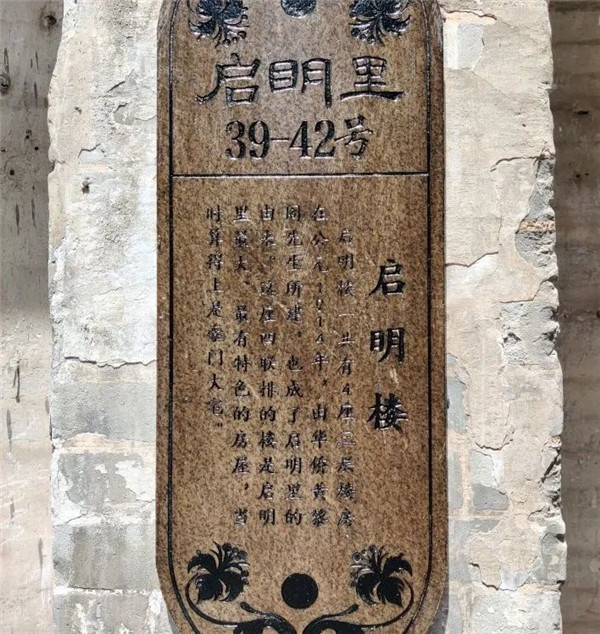 启明里
39-42号
启明楼
启明楼一共有4座三层楼房
在公元1914年,由华侨黄黎
同先生所建,也成了启明里的
由来。这座四联排的楼是启明
里最大、最有特色的房屋,当
时算得上是豪门大宅。